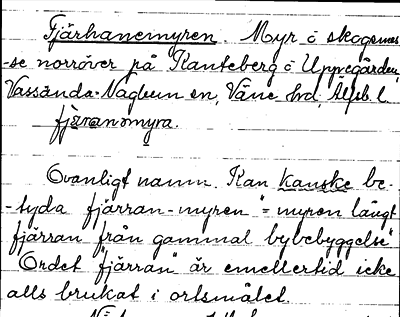 Fjärhanemyren. Myr å skogarnas
-se norröver på Ranteberg å Uppegården,
Vassända-Naglum sn, Väne hd, Älfsb. l.
fjäranomyra.
Ovanligt namn. Kan kanske be-
-tyda fjärran-myren "= myren långt
fjärran från gammal bybebyggelse"
Ordet "fjärran" är emellertid icke
alls brukat i ortsmålet.